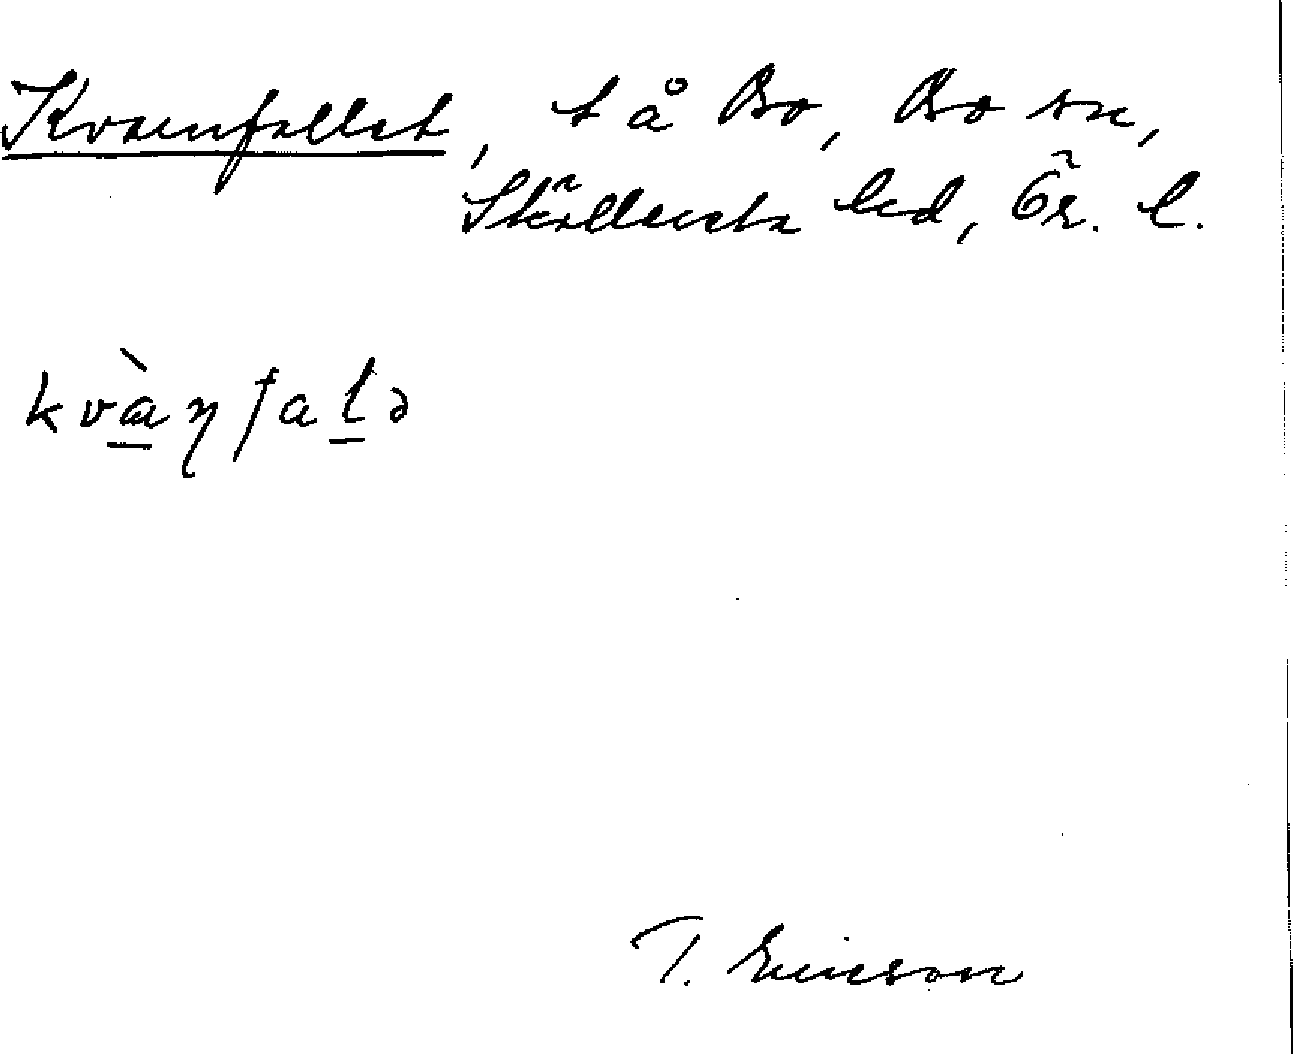 Kvarnfallet, t å Bo, Bo sn,
Skyllersta hd, Ör. l.
kvàṉfaḻə
T. Ericson